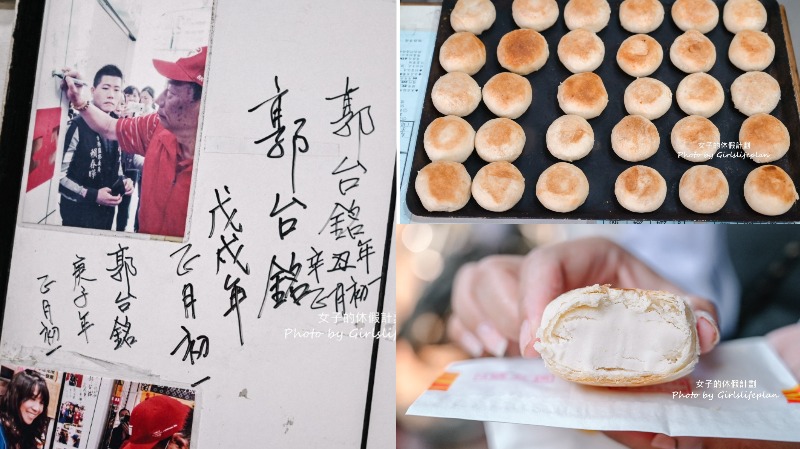 郭台銘
辛丑年
正月初一
郭台銘
戊戌年
正月初一
郭台銘
庚子年
正月初一
女子的休假計劃
Photo by Girlslifeplan
女子的休假計劃
Photo by Girlslifeplan
女子的休假計劃
Photo by Girlslifeplan